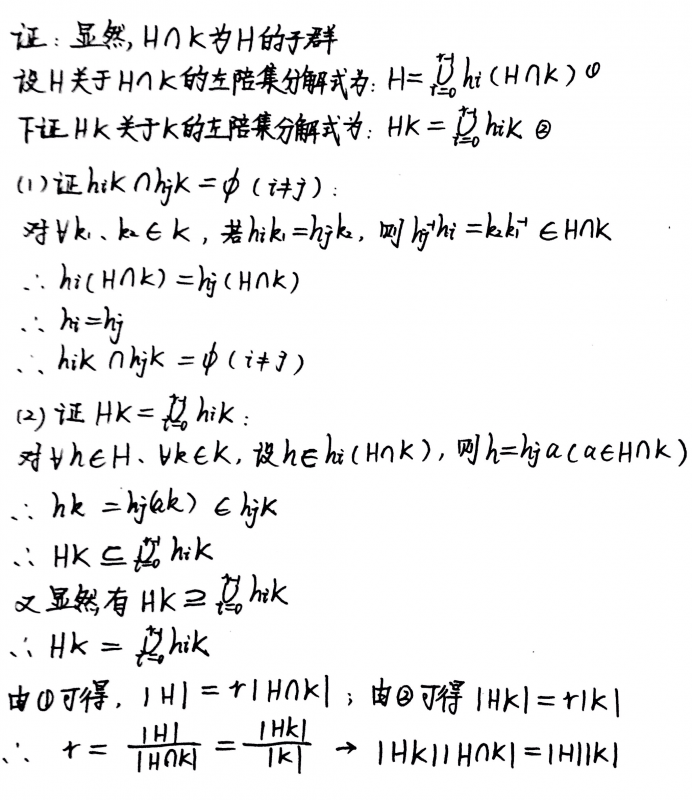 证：显然，H∩K为H的子群
设H关于H∩K的左陪集分解式为：H=⋃_{i=0}^{r-1} hi(H∩K) ①
下证HK关于K的左陪集分解式为：HK=⋃_{i=0}^{r-1} hiK ②
(1)证hiK∩hjK=φ（i≠j）：
对∀k₁、k₂∈K，若hik₁=hjk₂，则hj⁻¹hi=k₂k₁⁻¹∈H∩K
∴ hi(H∩K)=hj(H∩K)
∴ hi=hj
∴ hiK∩hjK=φ（i≠j）
(2)证HK=⋃_{i=0}^{r-1} hiK：
对∀h∈H、∀k∈K，设h∈hi(H∩K)，则h=hja（a∈H∩K）
∴ hk=hj(ak)∈hjK
∴ HK⊆⋃_{i=0}^{r-1} hiK
又显然有HK⊇⋃_{i=0}^{r-1} hiK
∴ HK=⋃_{i=0}^{r-1} hiK
由①可得，|H|=r|H∩K|；由②可得|HK|=r|K|
∴ r=|H|/|H∩K|=|HK|/|K| → |HK||H∩K|=|H||K|